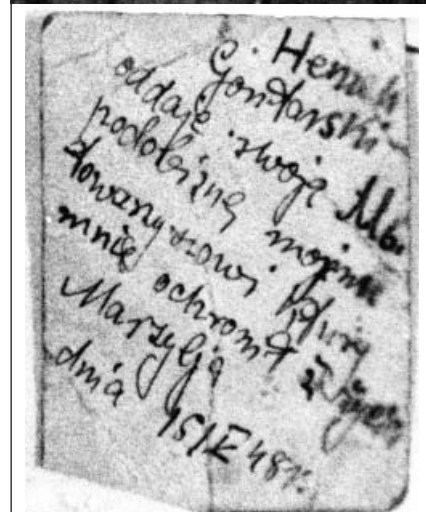 Henrik
Gontarski
oddaję swoję
podobiznę mojemu
towarzyszowi ktury
mnię ochronił życie
Marzylja
dnia 15/X 48r.